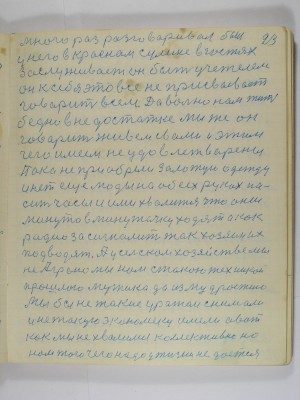 много раз разговаривал был 23
у него в Красном Сулине в гостях
заслуживает он быть учетелем
он к себя это все не присваевает
говорит всем Довольно нам жить
бедно в не достатке мы же он
говорит живем с вами и этим
чего имеем не удовлетварены
Пока не приобрели залотую одежду
и нет еще моды на обеех руках на-
сить часы и ими хвалится что они
минут в минуточку ходят и как
радио засигналит так хозяевах
подводят. А у сельском хозяйстве мы
не Аграномы нам столько техники
прошлого мужика да и му дростью
Мы бы не такие уражаи снимали
и не такую экономику имели а вот
как мы не хвалимся коллективно но
нам того чего надо у жизни не дается